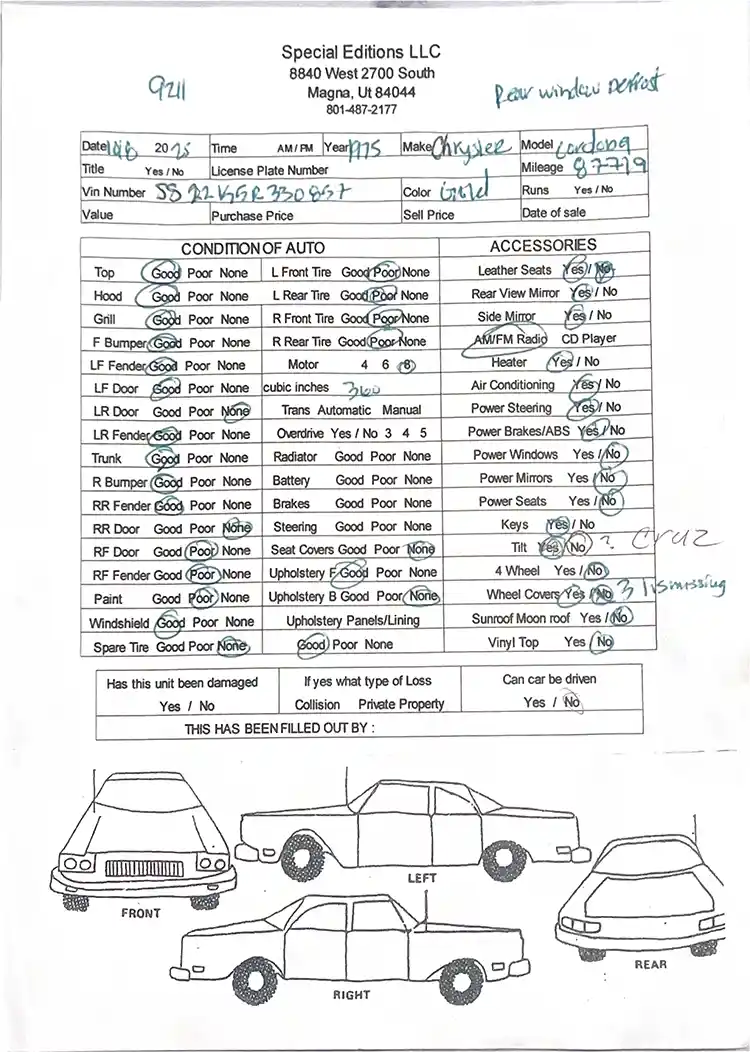 Special Editions LLC
8840 West 2700 South
9211
Magna, Ut 84044
Rear window Defrost
801-487-2177
Date 2025 Time AM / PM Year 1975 Make Chrysler Model Cordoba
Title Yes / No License Plate Number Mileage 87719
Vin Number SS22K5R330857 Color Gold Runs Yes / No
Value Purchase Price Sell Price Date of sale
CONDITION OF AUTO ACCESSORIES
Top Good Poor None L Front Tire Good Poor None Leather Seats Yes / No
Hood Good Poor None L Rear Tire Good Poor None Rear View Mirror Yes / No
Grill Good Poor None R Front Tire Good Poor None Side Mirror Yes / No
F Bumper Good Poor None R Rear Tire Good Poor None AM/FM Radio CD Player
LF Fender Good Poor None Motor 4 6 8 Heater Yes / No
LF Door Good Poor None cubic inches 360 Air Conditioning Yes / No
LR Door Good Poor None Trans Automatic Manual Power Steering Yes / No
LR Fender Good Poor None Overdrive Yes / No 3 4 5 Power Brakes/ABS Yes / No
Trunk Good Poor None Radiator Good Poor None Power Windows Yes / No
R Bumper Good Poor None Battery Good Poor None Power Mirrors Yes / No
RR Fender Good Poor None Brakes Good Poor None Power Seats Yes / No
RR Door Good Poor None Steering Good Poor None Keys Yes / No
RF Door Good Poor None Seat Covers Good Poor None Tilt Yes / No ? Cruz
RF Fender Good Poor None Upholstery F Good Poor None 4 Wheel Yes / No
Paint Good Poor None Upholstery B Good Poor None Wheel Covers Yes / No 3 1 is missing
Windshield Good Poor None Upholstery Panels/Lining Sunroof Moon roof Yes / No
Spare Tire Good Poor None Good Poor None Vinyl Top Yes / No
Has this unit been damaged If yes what type of Loss Can car be driven
Yes / No Collision Private Property Yes / No
THIS HAS BEEN FILLED OUT BY :
LEFT
FRONT
REAR
RIGHT